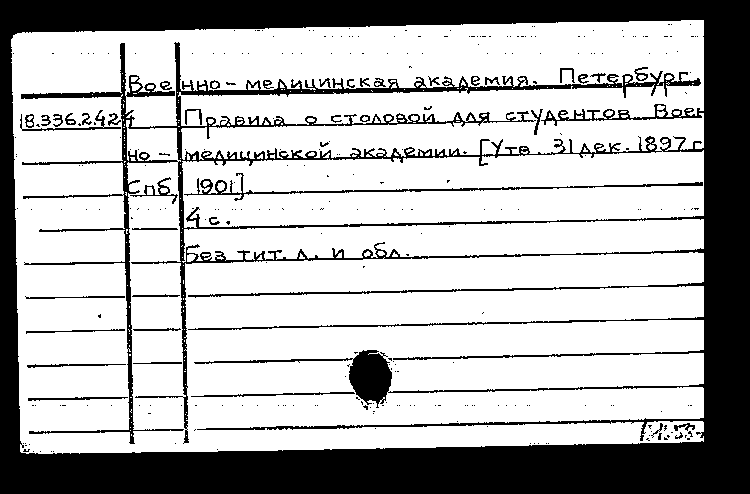 Военно-медицинская академия. Петербург.
18.336.2.424 Правила о столовой для студентов Воен
но-медицинской академии. [Утв. 31 дек. 1897 г
Спб, 1901].
4 с.
Без тит. л. и обл.